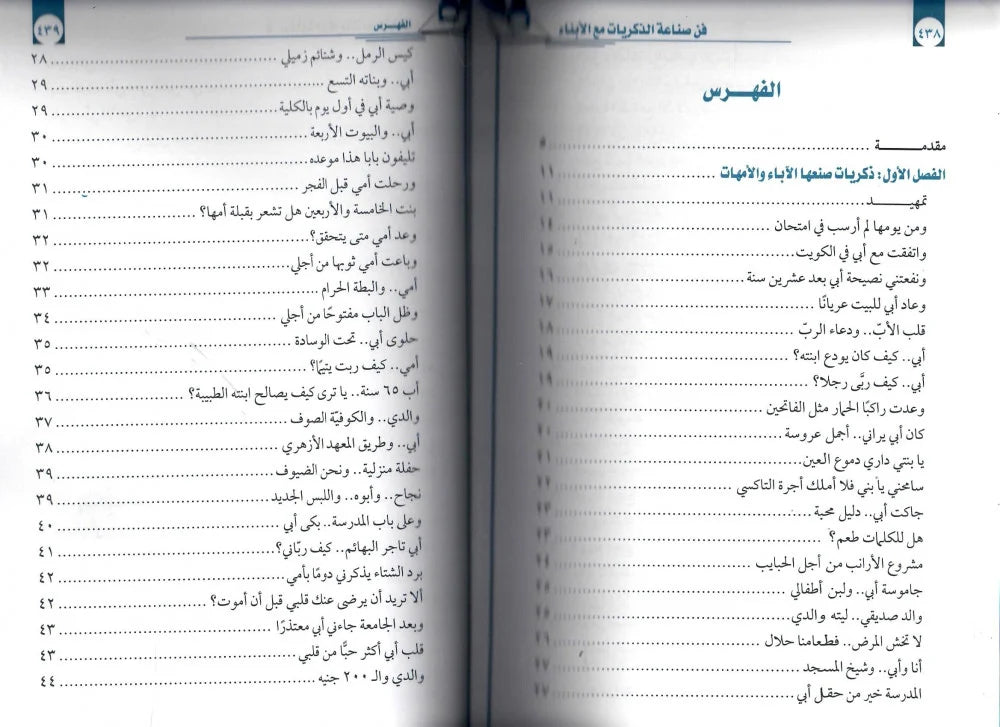 ٤٣٨
فن صناعة الذكريات مع الأبناء
الفهـــرس
مقدمـــــــة ........ ٥
الفصل الأول: ذكريات صنعها الآباء والأمهات ........ ١١
تمهيـــــــد ........ ١١
ومن يومها لم أرسب في امتحان ........ ١٤
واتفقت مع أبي في الكويت ........ ١٥
ونفعتني نصيحة أبي بعد عشرين سنة ........ ١٦
وعاد أبي للبيت عريانًا ........ ١٧
قلب الأبّ.. ودعاء الربّ ........ ١٨
أبي.. كيف كان يودع ابنته؟ ........ ١٩
أبي.. كيف ربَّى رجلا؟ ........ ١٩
وعدت راكبًا الحمار مثل الفاتحين ........ ٢١
كان أبي يراني.. أجمل عروسة ........ ٢١
يا بنتي داري دموع العين ........ ٢١
سامحني يا بني فلا أملك أجرة التاكسي ........ ٢٢
جاكت أبي.. دليل محبة ........ ٢٣
هل للكلمات طعم؟ ........ ٢٣
مشروع الأرانب من أجل الحبايب ........ ٢٤
جاموسة أبي.. ولبن أطفالي ........ ٢٥
والد صديقي.. ليته والدي ........ ٢٥
لا تخش المرض.. فطعامنا حلال ........ ٢٦
أنا وأبي.. وشيخ المسجد ........ ٢٧
المدرسة خير من حقل أبي ........ ٢٧
٤٣٩
الفهـرس
كيس الرمل.. وشتائم زميلي ........ ٢٨
أبي.. وبناته التسع ........ ٢٩
وصية أبي في أول يوم بالكلية ........ ٢٩
أبي.. والبيوت الأربعة ........ ٣٠
تليفون بابا هذا موعده ........ ٣٠
ورحلت أمي قبل الفجر ........ ٣١
بنت الخامسة والأربعين هل تشعر بقبلة أمها؟ ........ ٣١
وعد أمي متى يتحقق؟ ........ ٣٢
وباعت أمي ثوبها من أجلي ........ ٣٢
أمي.. والبطة الحرام ........ ٣٣
وظل الباب مفتوحًا من أجلي ........ ٣٤
حلوى أبي.. تحت الوسادة ........ ٣٥
أمي.. كيف ربت يتيمًا؟ ........ ٣٥
أب ٦٥ سنة.. يا ترى كيف يصالح ابنته الطبيبة؟ ........ ٣٦
والدي.. والكوفيّة الصوف ........ ٣٧
أبي.. وطريق المعهد الأزهري ........ ٣٨
حفلة منزلية.. ونحن الضيوف ........ ٣٩
نجاح.. وأبوه.. واللبس الجديد ........ ٣٩
وعلى باب المدرسة.. بكى أبي ........ ٤٠
أبي تاجر البهائم.. كيف ربّاني؟ ........ ٤١
برد الشتاء يذكرني دومًا بأمي ........ ٤٢
ألا تريد أن يرضى عنك قلبي قبل أن أموت؟ ........ ٤٢
وبعد الجامعة جاءني أبي معتذرًا ........ ٤٣
قلب أبي أكثر حبًّا من قلبي ........ ٤٣
والدي والـ ٢٠٠ جنيه ........ ٤٤